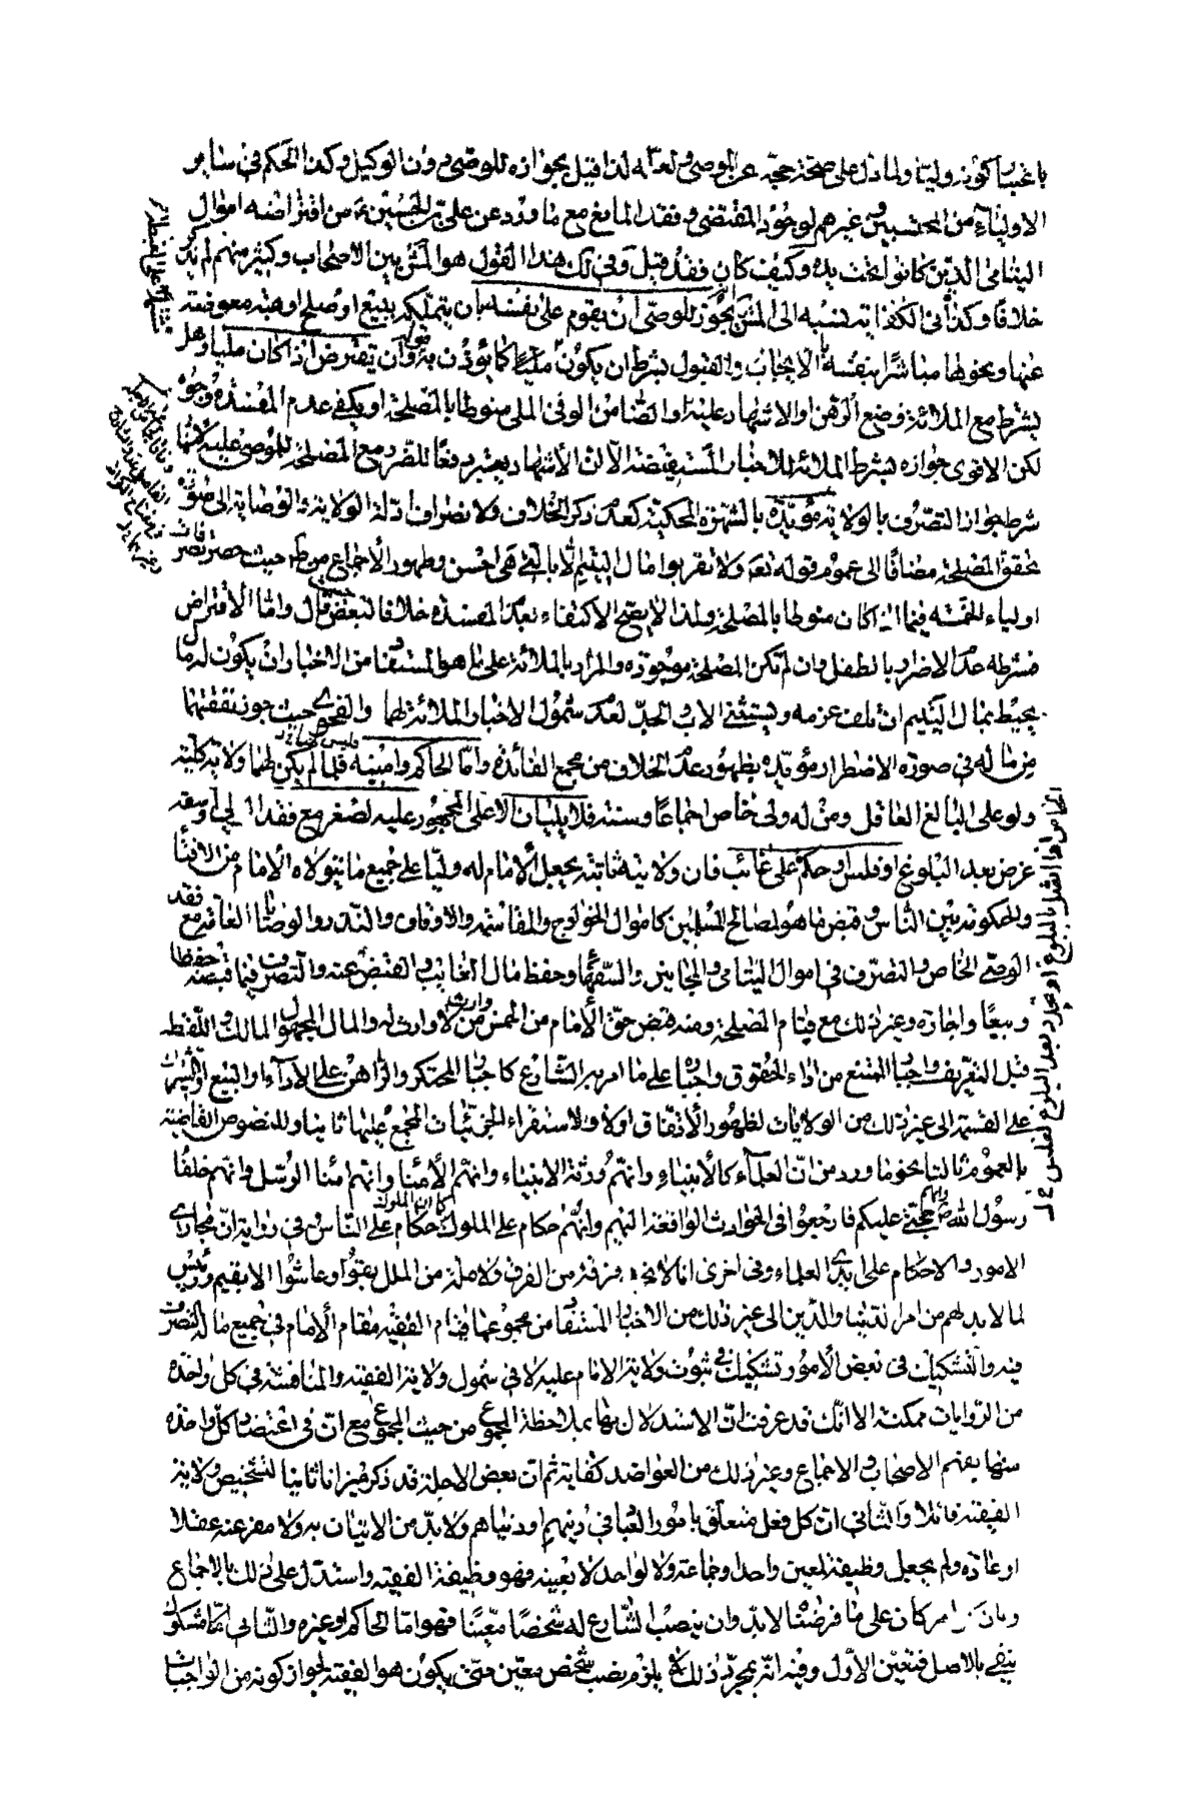 باعتبار كونه وليّا ولما دل على صحة حجّه عن الموصى له لذا قيل بجوازه للوصى دون الوكيل وكذا الحكم فى ساير
الاولياء من المحتسبين وغيرهم لوجود المقتضى وفقد المانع مع ما ورد عن على بن الحسين ع من اقتراضه اموال
اليتامى الذين كانوا تحت يده وكيف كان فقد قيل وفى ذلك هذا القول هو المش بين الاصحاب وكثير منهم لم يذكر
خلافا وكذا فى الكفاية نسبه الى المش يجوز للوصى ان يقوم على نفسه بان يتملكه ببيع او صلح او هبة معوضة
عنها ونحوها مباشرا بنفسه الايجاب والقبول بشرط ان يكون مليّا كما يؤذن به قوله وان يقترض اذا كان مليا وهل
يشترط مع الملائة وضع الرهن او الاشهاد عليه او الضامن الوفى الملى منوطا بالمصلحة او يكفى عدم المفسدة وجوه
لكن الاقوى جوازه بشرط الملائة للاخبار المستفيضة الا ان الاشهاد يعتبر دفعا للضرر مع المصلحة للموصى عليه لانها
شرط جواز التصرف بالولاية مؤيدة بالشهرة المحكية كعدم ذكر الخلاف ولانصراف ادلة الولاية والوصاية الى صورة
تحقق المصلحة مضافا الى عموم قوله تعه ولا تقربوا مال اليتيم الا بالتى هى احسن وظهور الاجماع من حيث حصر تصرفات
اولياء الخمسة فيما اذا كان منوطا بالمصلحة ولذا لا يصح الاكتفاء بعدم المفسدة خلافا لبعض حيث قال واما الاقتراض
فشرطه عدم الاضرار بالطفل وان لم تكن المصلحة موجودة والمراد بالملائة على ما هو المستفاد من الاخبار ان يكون له مال
يحيط بمال اليتيم ان تلف غرمه ويستثنى الاب والجد لعدم شمول الاخبار الملائة لهما والفحوى حيث جوز نفقتهما
من ماله فى صورة الاضطرار مؤيدة بظهور عدم الخلاف من مجمع الفائدة واما الحاكم وامينه فلما لم يكن لهما ولاية كلية
ولو على البالغ العاقل ومن له ولى خاص اجماعا وسنة فلا يليان الا على المحجور عليه لصغر مع فقد الولى او سفه
عرض بعد البلوغ او فلس او حكم على غائب فان ولايته ثابتة بجعل الامام له وليّا على جميع ما يتولاه الامام من الافتاء
والحكومة بين الناس وقبض ما هو لمصالح المسلمين كاموال الخراج والمقاسمة والاوقاف والنذر والوصايا العامة مع فقد
الوصى الخاص والتصرف فى اموال اليتامى والمجانين والسفهاء وحفظ مال الغائب والقبض عنه والتصرف فيما قبضه حفظا
وبيعا واجارة وغير ذلك مع قيام المصلحة ومنه قبض حق الامام من الخمس وارث من لا وارث له والمال المجهول المالك واللقطة
قبل التعريف واجبار الممتنع من اداء الحقوق واجباره على ما امر به الشارع كاجبار المحتكر والراهن على الاداء او البيع والشريك
على القسمة الى غير ذلك من الولايات لظهور الاتفاق اولا والاستقراء الجزئيات المجمع عليها ثانيا وللنصوص القاضية
بالعموم ثالثا نحو ما ورد من ان العلماء كالانبياء وانهم ورثة الانبياء وانهم الامناء وانهم امناء الرسل وانهم خلفاء
رسول الله ص وانهم حجتى عليكم فارجعوا فى الحوادث الواقعة اليهم وانهم حكام على الملوك كما ان الملوك حكام على الناس وفى رواية ان مجارى
الامور والاحكام على ايدى العلماء وفى اخرى انا لا نجد فرقة من الفرق ولا ملة من الملل بقوا وعاشوا الا بقيم ورئيس
لما لابد لهم من امر الدنيا والدين الى غير ذلك من الاخبار المستفاد من مجموعها قيام الفقيه مقام الامام فى جميع ما له التصرف
فيه والتشكيك فى بعض الامور وتشكيك فى ثبوت ولاية الامام عليه لا فى شمول ولاية الفقيه والمناقشة فى كل واحدة
من الروايات ممكنة الا انك قد عرفت ان الاستدلال بها بملاحظة المجموع من حيث المجموع مع ان فى اعتضاد كل واحدة
منها بفهم الاصحاب والاجماع وغير ذلك من العواضد كفاية ثم ان بعض الاجلة قد ذكر ميزانا ثانيا لتشخيص ولاية
الفقيه قائلا والثانى ان كل فعل متعلق بامور العباد فى دينهم او دنياهم ولابد من الاتيان به ولا مفر عنه عقلا
او عادة ولم يجعل وظيفة لمعين واحد او جماعة ولا لواحد لا بعينه فهو وظيفة الفقيه واستدل على ذلك بالاجماع
وبان كان على ما فرضنا لابد وان ينصب الشارع له شخصا معينا فهو اما الحاكم او غيره والثانى امّا مشكوك
ينفى بالاصل فتعين الاول وفيه انه بمجرد ذلك لا يلزم نصب شخص معين حتى يكون هو الفقيه لجواز كونه من الواجبات